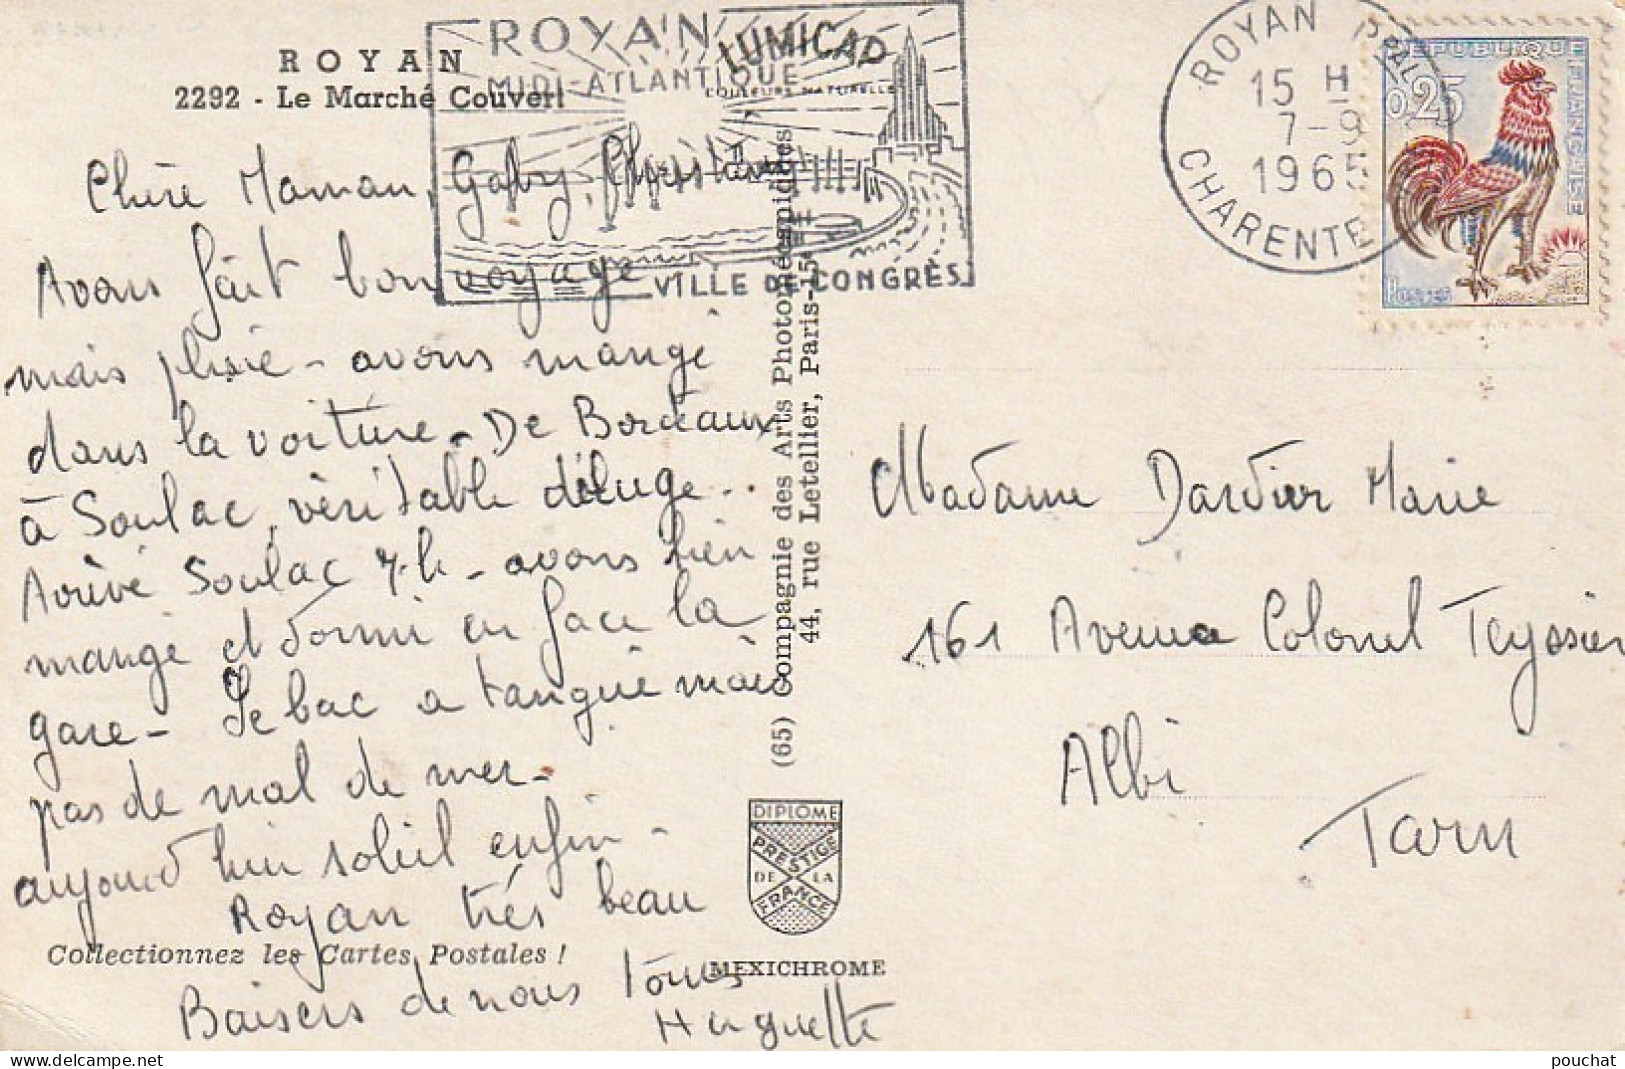 ROYAN
2292 - Le Marché Couvert
ROYAN
MIDI-ATLANTIQUE
LUMICAP
COULEURS NATURELLES
VILLE DE CONGRÈS
ROYAN PAL
15 H
7-9
1965
CHARENTE
REPUBLIQUE FRANÇAISE
0,25
POSTES
Chère Maman, Gaby, Christian
Avons fait bon voyage
mais pluie - avons mangé
dans la voiture - De Bordeaux
à Soulac, véritable déluge -
Arrivé Soulac 7h - avons bien
mangé et dormi en face la
gare - Le bac a tangué mais
pas de mal de mer -
aujourd'hui soleil enfin -
Royan très beau
Collectionnez les Cartes Postales !
Baisers de nous tous
Huguette
(65) Compagnie des Arts Photomécaniques
44, rue Letellier, Paris-15e
DIPLOME
PRESTIGE
DE LA
FRANCE
MEXICHROME
Madame Dardier Marie
161 Avenue Colonel Teyssier
Albi
Tarn
pouchat